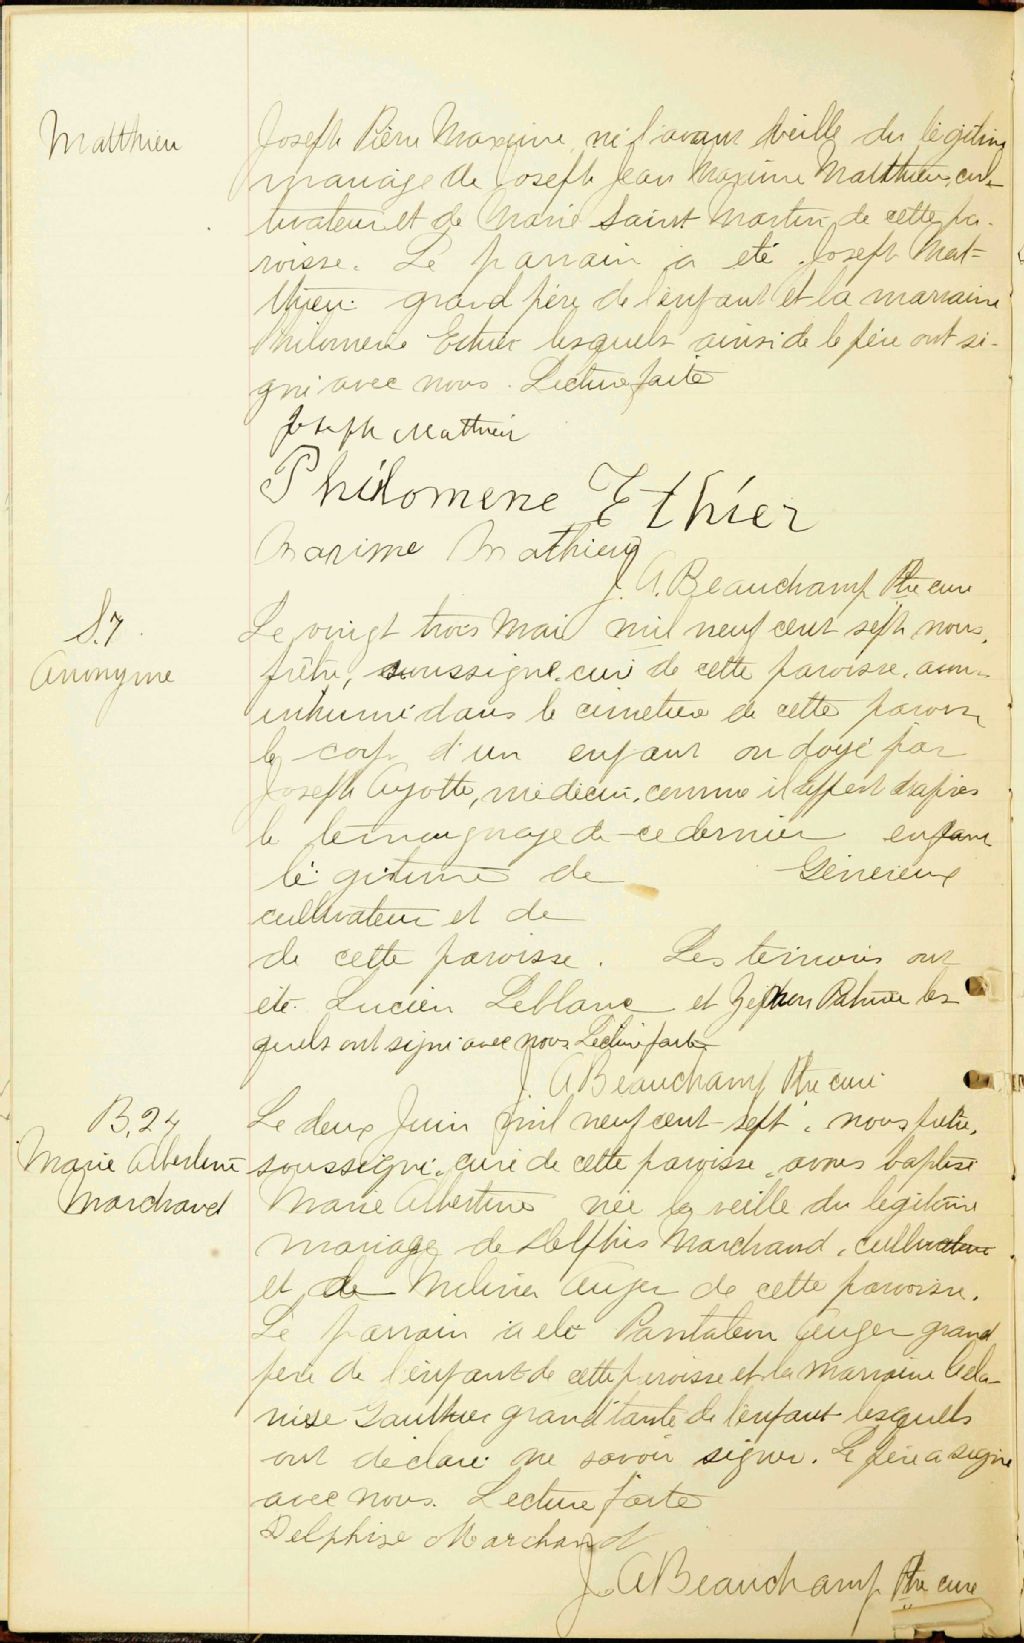 Matthieu
Joseph Pierre Maxime, né l'avant veille du légitime
mariage de Joseph Jean Maxime Matthieu, cul-
tivateur et de Marie Saint Martin de cette pa-
roisse. Le parrain a été Joseph Mat-
thieu grand père de l'enfant et la marraine
Philomene Ethier lesquels ainsi de le père ont si-
gné avec nous. Lecture faite
Joseph Mathieu
Philomene Ethier
Maxime Mathieu
J. A. Beauchamp Ptre curé
S. 7
Anonyme
Le vingt trois Mai mil neuf cent sept nous,
prêtre, soussigné, curé de cette paroisse, avons
inhumé dans le cimetière de cette paroisse
le corps d'un enfant ondoyé par
Joseph Ayotte, médecin, comme il appert d'après
le témoignage de ce dernier enfant
légitime de Généreux
cultivateur et de
de cette paroisse. Les témoins ont
été Lucien Leblanc et les
quels ont signé avec nous Lecture faite
J. A Beauchamp Ptre curé
B. 24
Marie Albertine
Marchand
Le deux Juin mil neuf cent sept, nous prêtre,
soussigné, curé de cette paroisse, avons baptisé
Marie Albertine née la veille du légitime
mariage de Delphis Marchand, cultivateur
et de Melina Auger de cette paroisse.
Le parrain a été Pantaleon Auger grand
père de l'enfant de cette paroisse et la marraine
Gauthier grand'tante de l'enfant lesquels
ont déclaré ne savoir signer. Le père a signé
avec nous. Lecture faite
Delphise Marchand
J. A Beauchamp Ptre curé